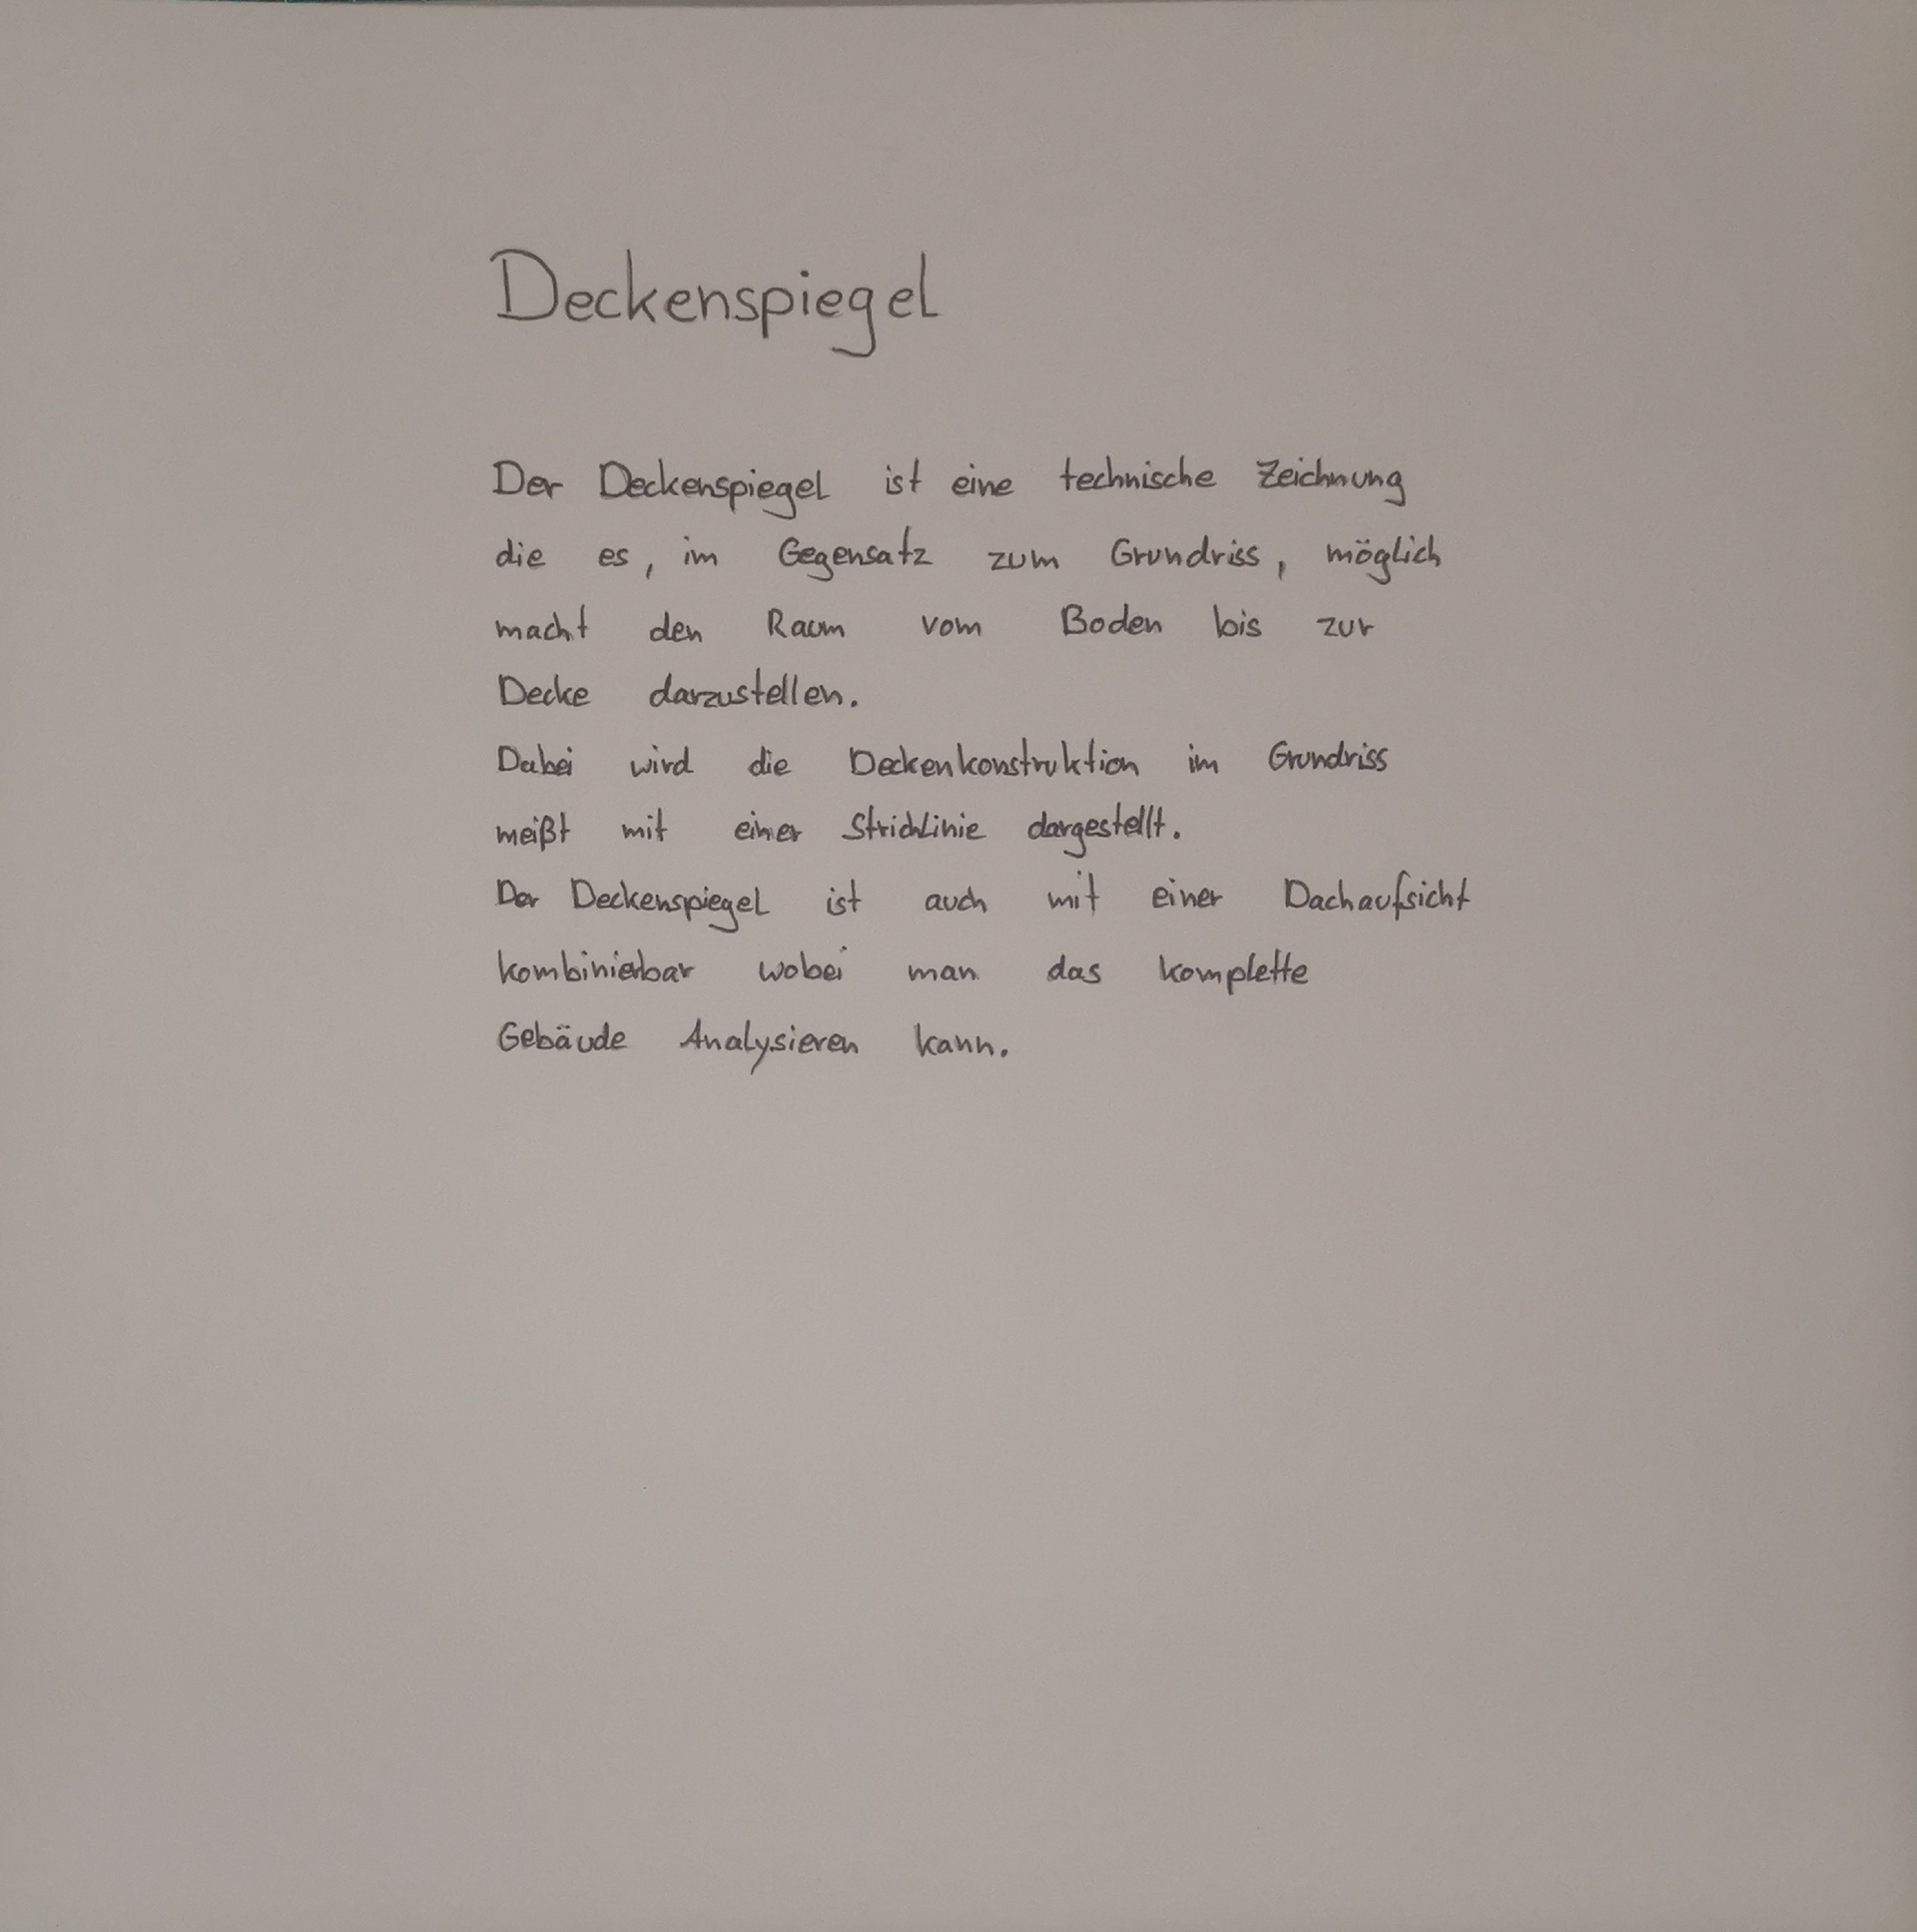 Deckenspiegel
Der Deckenspiegel ist eine technische Zeichnung
die es, im Gegensatz zum Grundriss, möglich
macht den Raum vom Boden bis zur
Decke darzustellen.
Dabei wird die Deckenkonstruktion im Grundriss
meißt mit einer Strichlinie dargestellt.
Der Deckenspiegel ist auch mit einer Dachaufsicht
kombinierbar wobei man das komplette
Gebäude Analysieren kann.